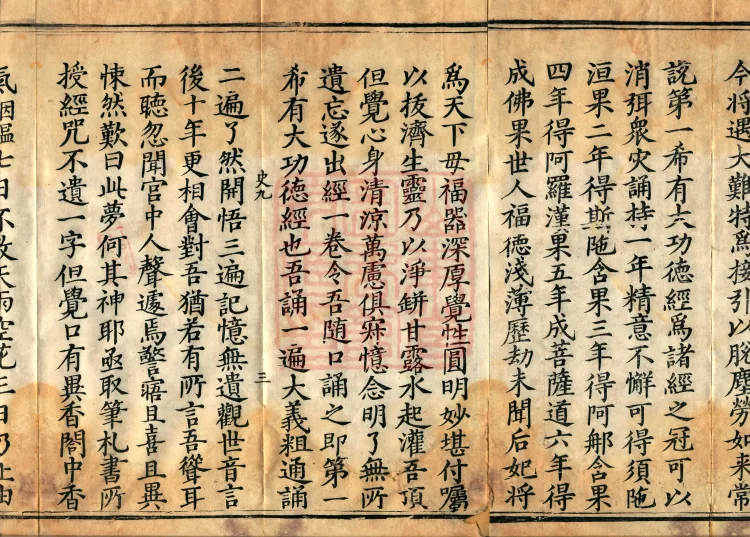 今將遇大難特為接引以脫塵勞如来常
說第一希有大功德經為諸經之冠可以
消弭衆灾誦持一年精意不懈可得須陁
洹果二年得斯陁含果三年得阿那含果
四年得阿羅漢果五年成菩薩道六年得
成佛果世人福德淺薄歷劫未聞后妃將
為天下母福器深厚覺性圓明妙堪付囑
以拔濟生靈乃以淨缾甘露水起灌吾頂
但覺心身清凉萬慮俱寂憶念明了無所
遺忘遂出經一卷令吾随口誦之即第一
希有大功德經也吾誦一遍大義粗通誦
史九
三
二遍了然開悟三遍記憶無遺觀世音言
後十年更相會對吾猶若有所言吾聳耳
而聽忽聞宫中人聲遽焉警寤且喜且異
悚然歎曰此夢何其神耶亟取筆札書所
授經咒不遺一字但覺口有異香閤中香
氣氤氲七日不散天雨空花三日乃止由